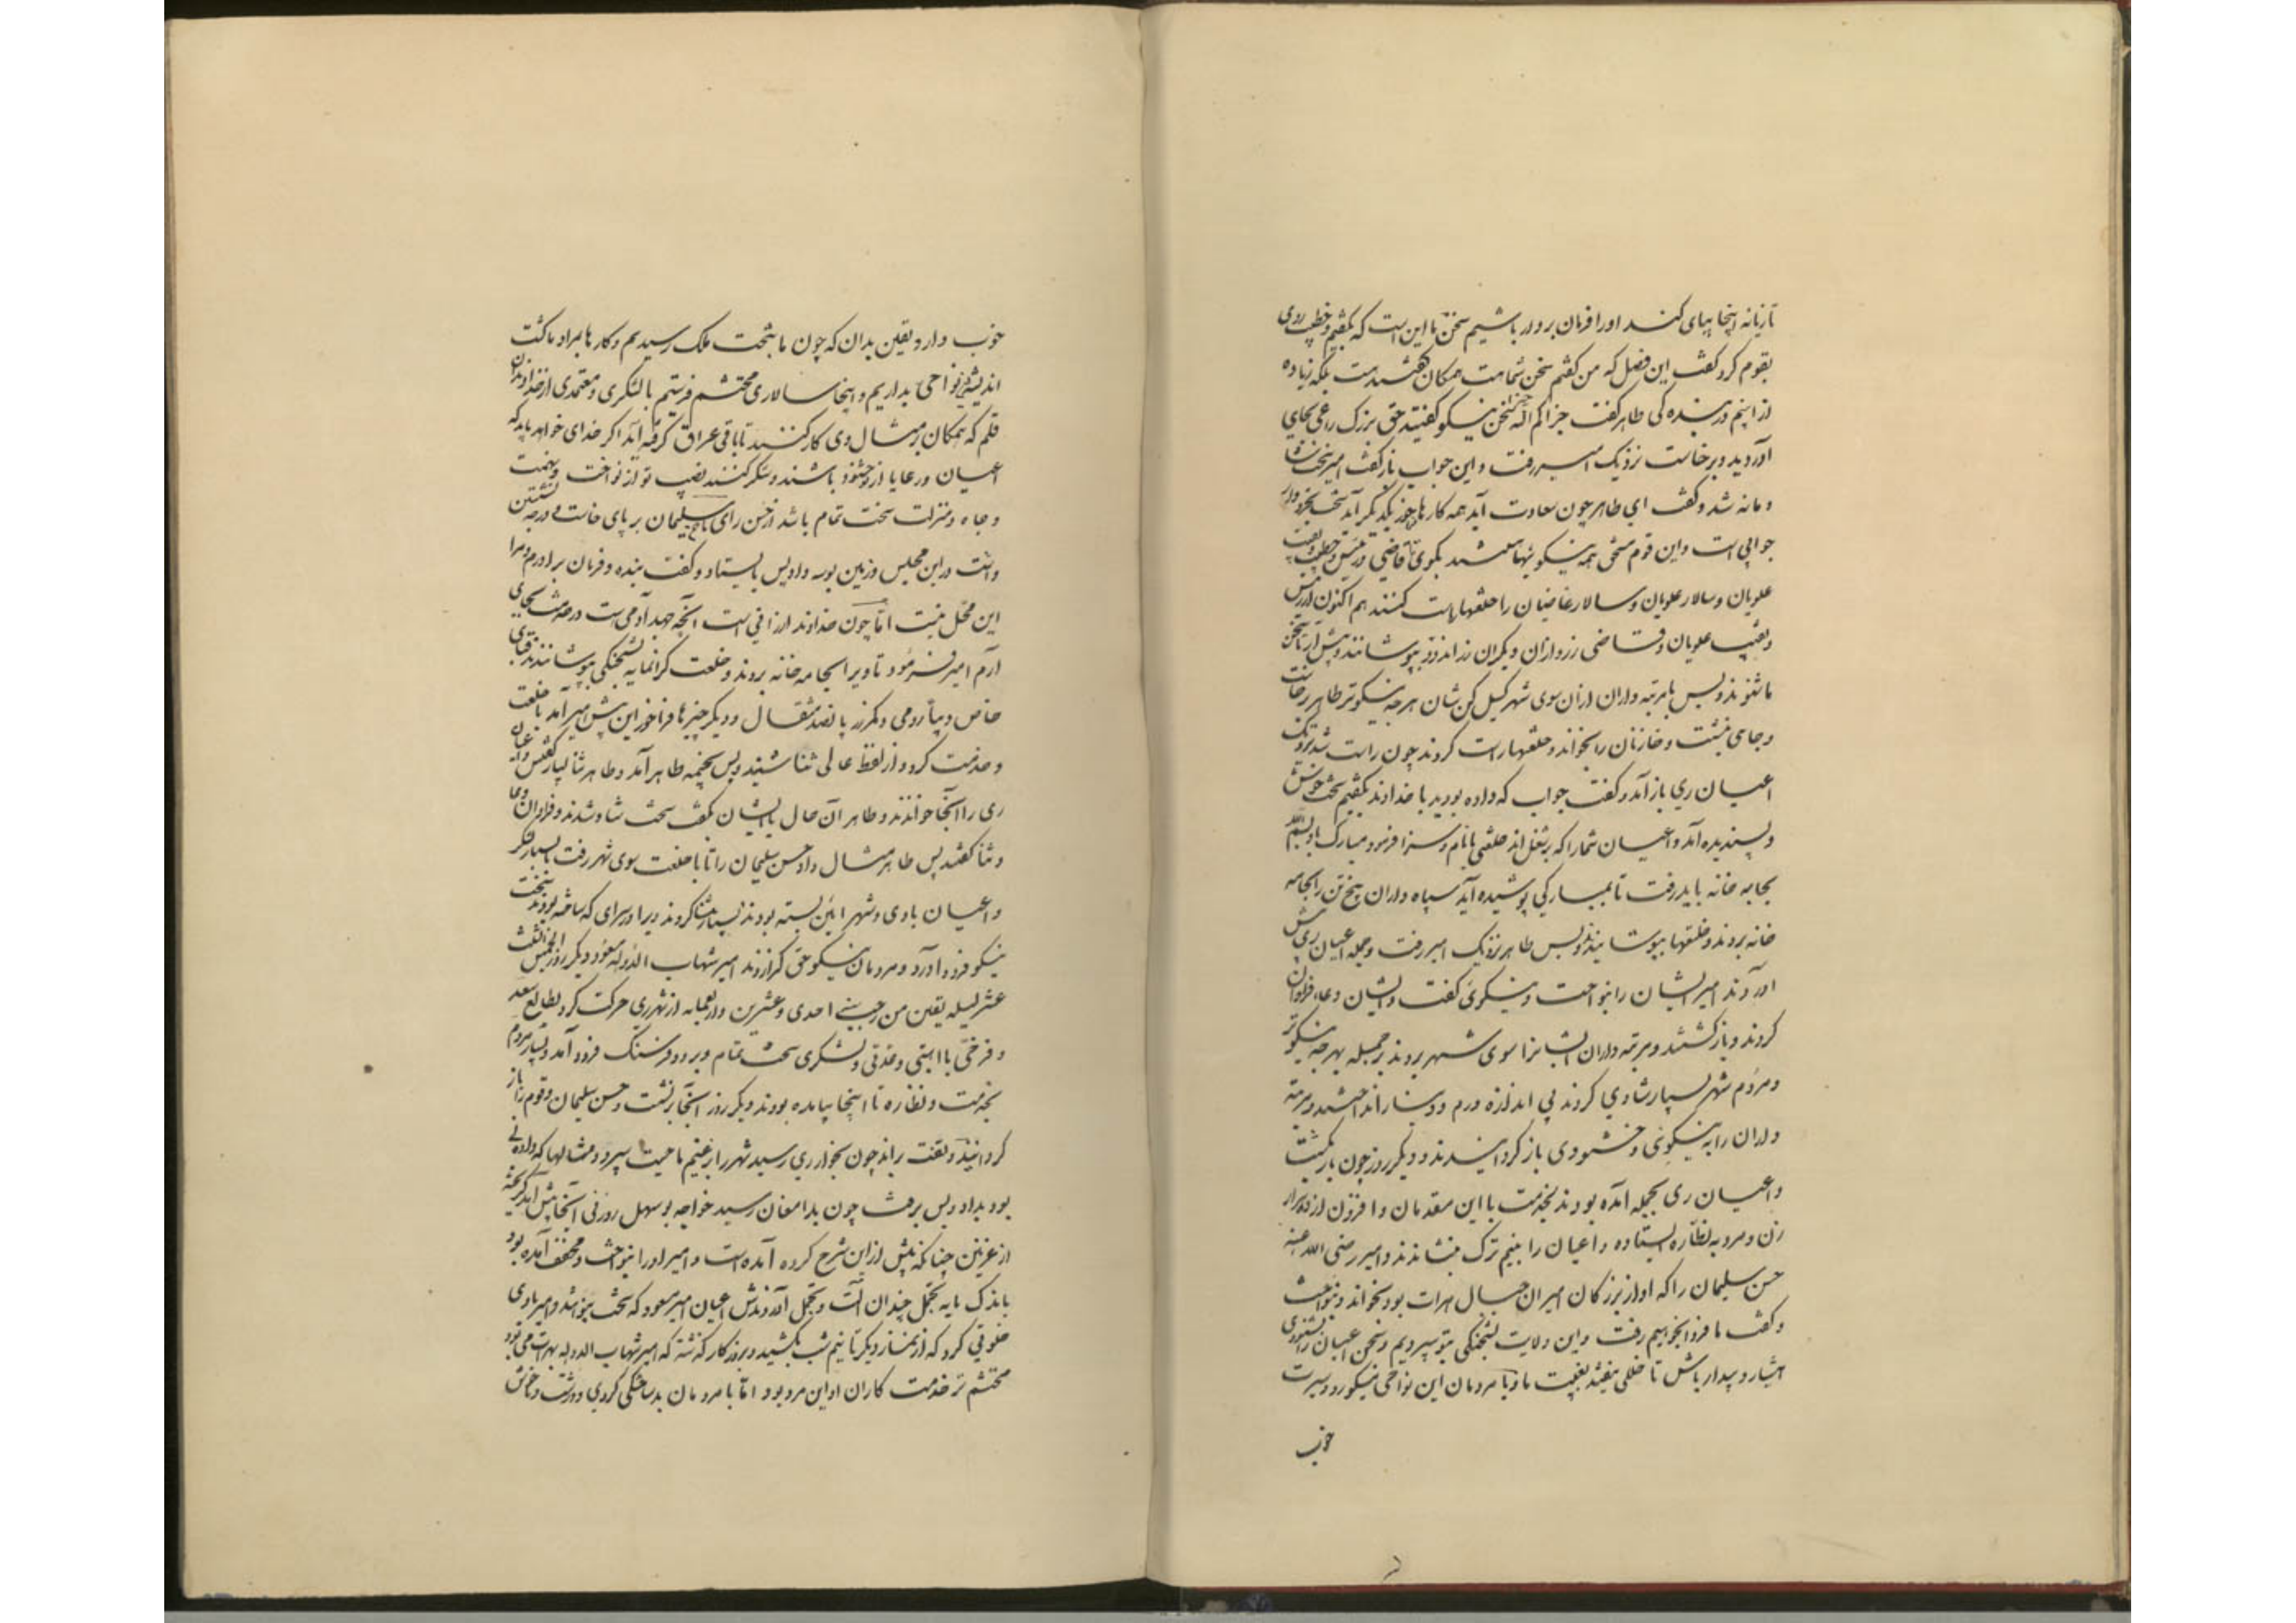 تازیانه اینجا بپای کند او را فرمان بردار باشیم سخن ما این است که بگفتیم و خطیب روی
بقوم کرد و گفت این فصل که من گفتم سخن شما هست همگان گفتند هست بلکه زیاده
ازینیم در بندگی طاهر گفت جزاکم الله خیرا سخن نیکو گفتید و حق بزرگ راعی بجای
آوردید و برخاست نزدیک امیر رفت و این جواب باز گفت امیر سخت شا
دمانه شد و گفت ای طاهر چون سعادت آید همه کارها فراخور یکدیگر آید سخت بخردوار
جوابی است و این قوم مستحق همه نیکوییها هستند بگوی تا قاضی و رئیس و خطیب و نقیب
علویان و سالار علویان و سالار غازیان را خلعتها راست کنند هم اکنون از رئیس
و نقیب علویان و قاضی زر و ازان دیگران زر اندود بپوشانند و پیش آر تا سخن
ما شنوند و پس با مرتبه داران ازان سوی شهر گسیل کن شان هر چه نیکوتر طاهر برخاست
و جایی بنشست و خازنان را بخواند و خلعتها راست کردند چون راست شد نزدیک
اعیان ری باز آمد و گفت جواب که داده بودید با خداوند بگفتم سخت خوش
و پسندیده آمد و اعیان شما را که بر شغل اند خلعتی بانام و سزا فرمود مبارک باد بسم الله
بجامه خانه باید رفت تا بمبارکی پوشیده آید سیاه داران پنج تن را بجامه
خانه بردند و خلعتها بپوشانیدند و پس طاهر نزدیک امیر رفت و جمله اعیان ری پیش
آوردند امیر ایشان را بنواخت و نیکوئی گفت و ایشان دعاء فراوان
کردند و بازگشتند و مرتبه داران ایشانرا سوی شهر بردند بر جمله هر چه نیکوتر
و مردم شهر بسیار شادی کردند بی اندازه درم و دینار انداختند و مرتبه
داران را به نیکوئی و خشنودی باز گردانیدند و دیگر روز چون بار بگسست
و اعیان ری بجمله آمده بودند بخدمت با این مقدمان و افزون از ده هزار
زن و مرد به نظاره ایستاده و اعیان را بنیم ترک بنشاندند و امیر رضی الله عنه
حسن سلیمان را که او از بزرگان امیران جبال هرات بود بخواند و بنواخت
و گفت ما فردا بخواهیم رفت و این ولایت بشحنگی بتو سپردیم و سخن اعیان را بشنودی
هشیار و بیدار باش تا خللی نیفتد بغیبت ما و با مردمان این نواحی نیکو رو و سیرت
خوب
خوب دار و یقین بدان که چون ما بتخت ملک رسیدیم و کارها بمراد ما گشت
اندیشه این نواحی بداریم و اینجا سالاری محتشم فرستیم با لشکری و معتمدی از خداوندان
قلم که همگان بر مثال وی کار کنند تا باقی عراق گرفته آید اگر خدای خواهد باید که
اعیان و رعایا از تو خشنود باشند و شکر کنند و نصیب تو از نواخت و نعمت
و جاه و منزلت سخت تمام باشد از حسن رای ما حسن سلیمان بر پای خاست و درجه نشستن
داشت در این مجلس و زمین بوسه داد پس بایستاد و گفت بنده و فرمان بردارم و مرا
این محل نیست اما چون خداوند ارزانی داشت آنچه جهد آدمی است در خدمت بجای
آرم امیر فرمود تا ویرا بجامه خانه بردند و خلعت گرانمایه بشحنگی بپوشانیدند قبای
خاص دیبای رومی و کمر زر پانصد مثقال و دیگر چیزها فراخور این پیش امیر آمد با خلعت
و خدمت کرد و از لفظ عالی ثنا شنید و پس بخیمه طاهر آمد و طاهر ثنا بسیار گفتش و اعیان
ری را آنجا خواندند و طاهر آن حال با ایشان بگفت سخت شاد شدند و فراوان دعا
و ثنا گفتند پس طاهر مثال داد حسن سلیمان را تا با خلعت سوی شهر رفت با بسیار لشکر
و اعیان با وی و شهر آئین بسته بودند بسیار نثار کردند و ویرا در سرای که ساخته بودند سخت
نیکو فرود آورد و مردمان نیکو حق گزاردند امیر شهاب الدوله مسعود دیگر روز الخمیس لثلث
عشر لیله بقین من رجب سنه احدی و عشرین و اربعمایه از شهر ری حرکت کرد بطالع سعد
و فرخی با اهبتی و عدتی و لشکری سخت تمام و بر دو فرسنگ فرود آمد و بسیار مردم
بخدمت و نظاره تا اینجا بیامده بودند دیگر روز آنجا برنشست و حسن سلیمان و قوم را باز
گردانید و بتفت براند چون بخوار ری رسید شهر را بزعیم ناحیت سپرد و مثالها که دادنی
بود بداد و پس برفت چون بدامغان رسید خواجه بوسهل زوزنی آنجا پیش آمد گریخته
از غزنین چنانکه پیش ازین شرح کرده آمده است و امیر او را بنواخت و مخف آمده بود
با اندک مایه تجمل چندان آلت و تجمل آوردندش اعیان امیر مسعود که سخت بنوا شد و امیر با وی
خلوتی کرد که از نماز دیگر تا نیم شب بکشید و بروزگار گذشته که امیر شهاب الدوله بهرات می بود
محتشم تر خدمت کاران او این مرد بود اما با مردمان بد ساختگی کردی و درشت و ناخوش